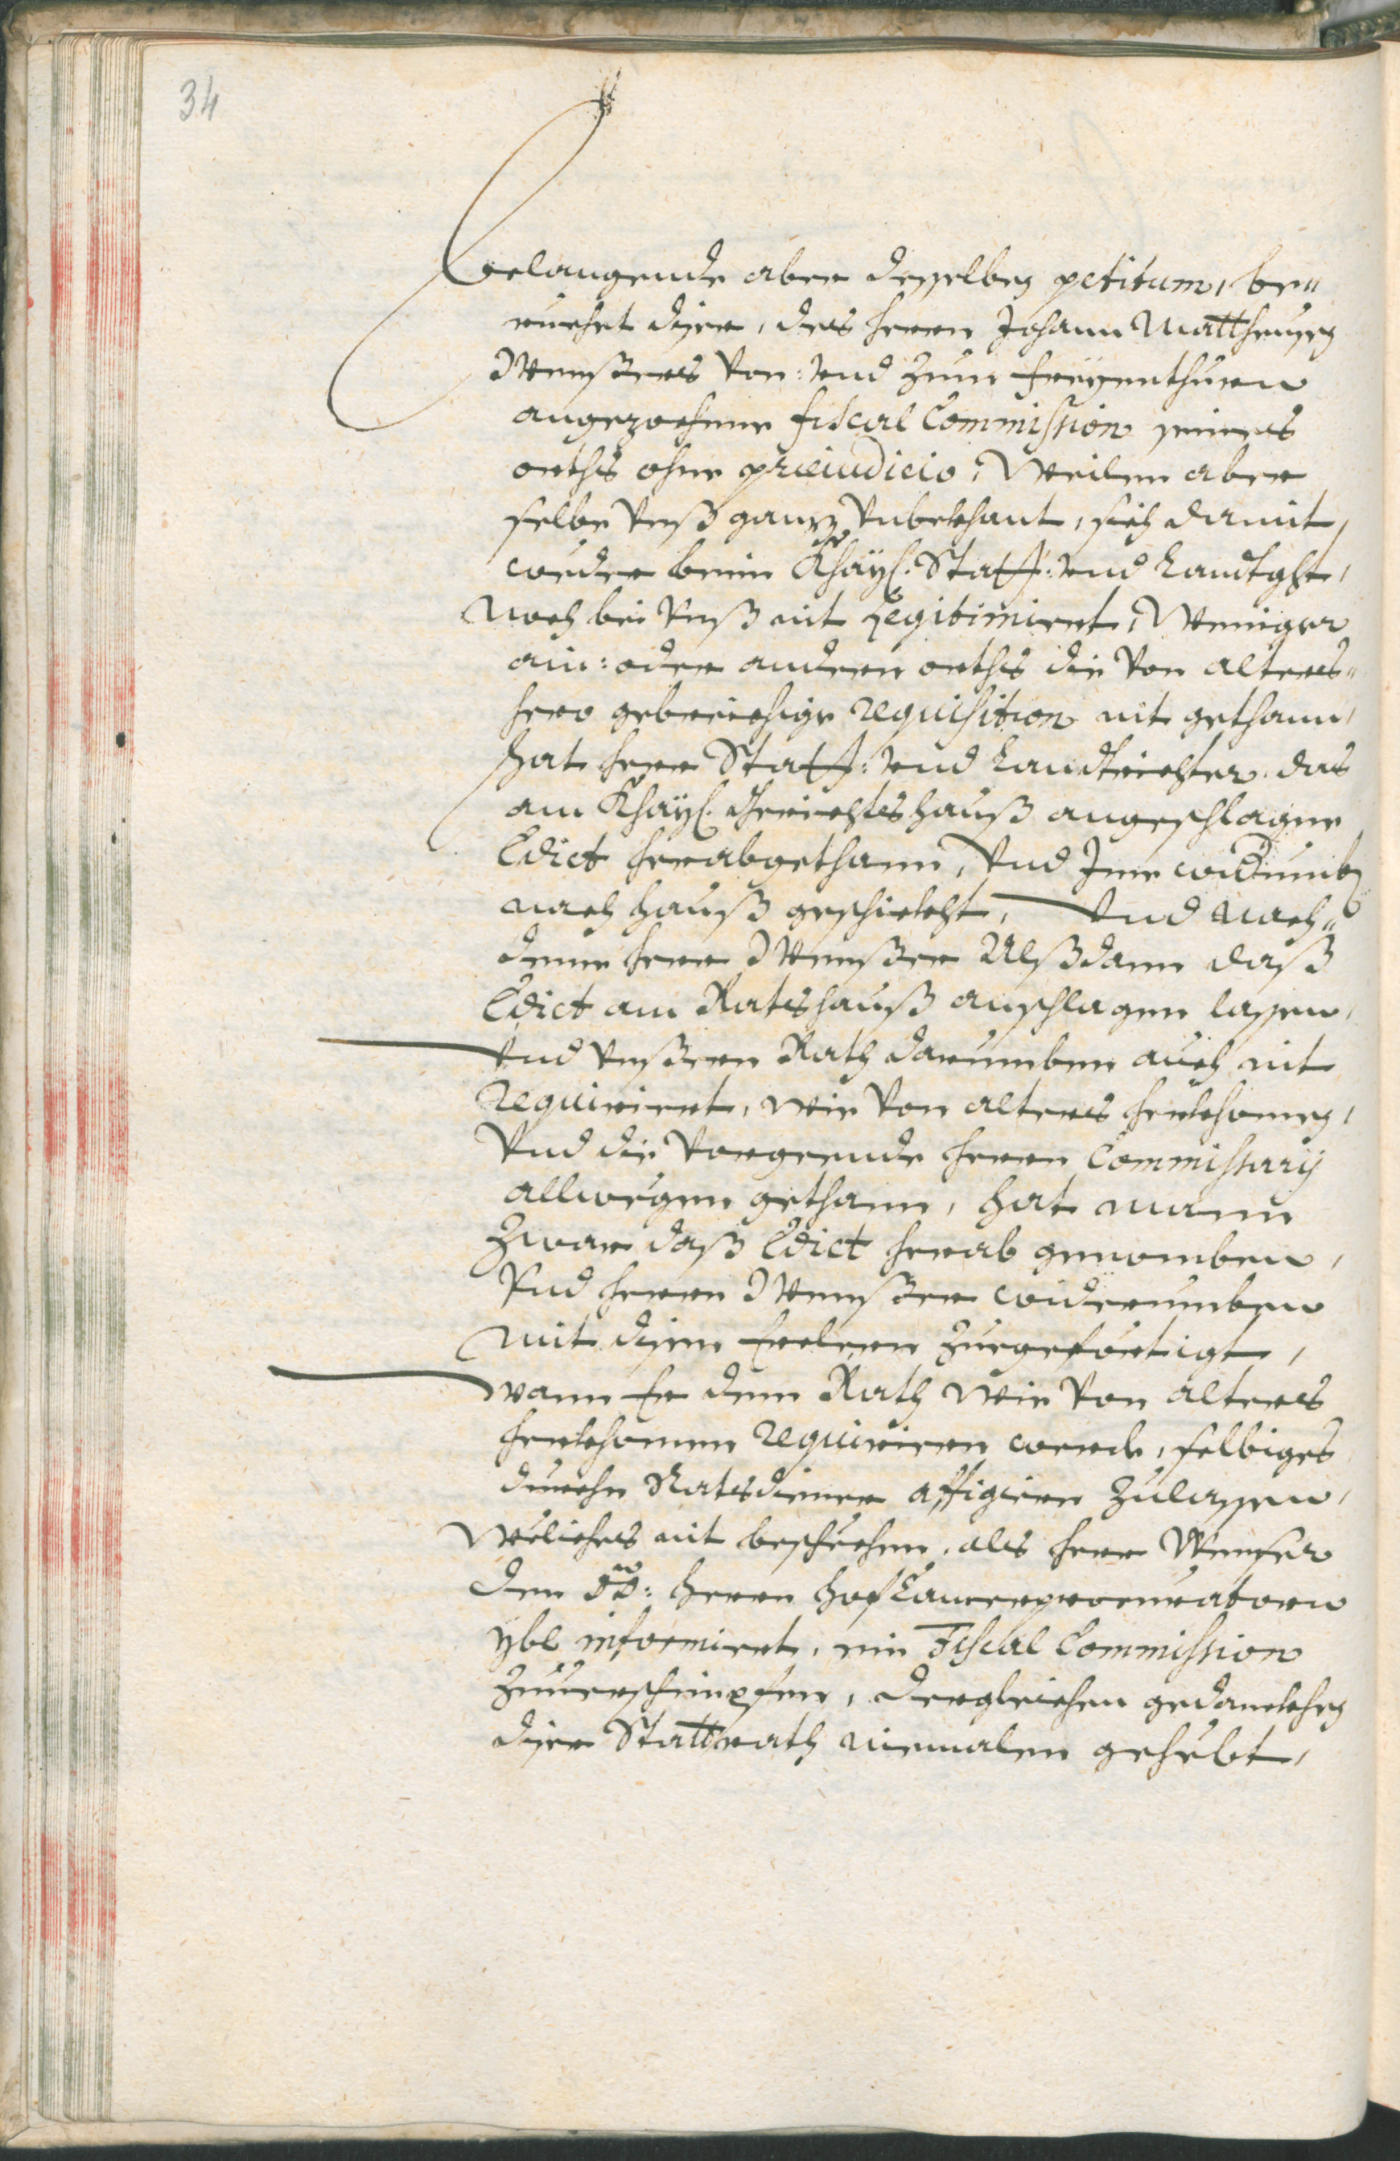 34
Belangende aber desselben petitum, be„
ruehrt diser, des herrn Johann Mattheusen
Wenßers von: vnd zum Freyenthurn
angezochene fiscal Commission seines
orths ohne præiudicio, Weilen aber
selbe vnß ganz vnbekhant, sich damit,
weder beim Khayß. Statt: vnd Landtght,
noch bei vnß nit legitimiert, Weniger
ain: oder andern orths die von alters„
hero gebreichige requisition nit gethann,
hat herr Statt: vnd Landtrichter das
am Khayß. Grichtshauß angeschlagne
Edict herabgethann, vnd Jme widumb
nach hauß geschickht, Vnd nach„
deme herr Wenßer Alßdann daß
Edict am Ratshauß anschlagen lassen,
vnd vnßern Rath darumben auch nit
requiriert, wie von alters herkhomen,
Vnd die vorgeende herrn Commissarij
allwegen gethann, hat mann
zwar daß Edict herab genomben,
Vnd herrn Wenßer widerumben
mit disem Erclern zuegefertigt,
wann Er denn Rath wie von alters
herkhomen requiriren werde, selbiges
durchn Ratsdiener affigiern zulassen,
weliches nit beschechen, als herr Wenßer
den ÖÖ: herrn hofCamerprocuratorn
ybl informiert, ein Fiscal Commission
zuuerschimpfen, dergleichen gedanckhen
diser Stattrath niemalen gehebt,